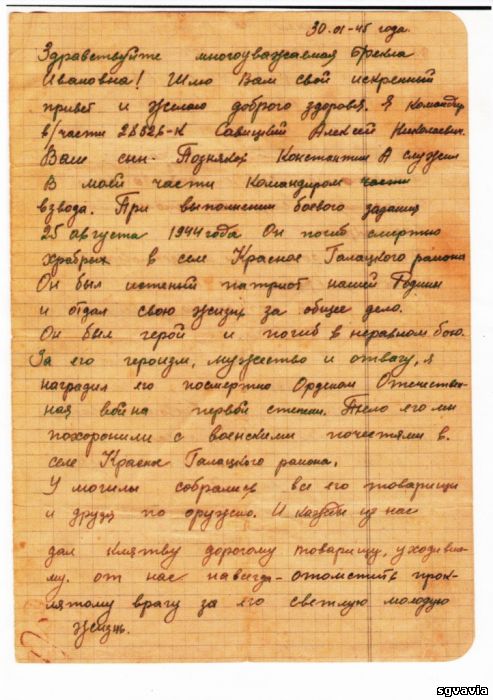 30.01-45 года.
Здравствуйте многоуважаемая Фекла
Ивановна! Шлю Вам свой искренний
привет и желаю доброго здоровья. Я командир
в/части 28626-К Савицкий Алексей Николаевич.
Ваш сын- Позняков Константин А служил
в моей части Командиром части
взвода. При выполнении боевого задания
25 августа 1944 года Он погиб смертью
храбрых в селе Красное Галацкого района
Он был истеный патриот нашей Родины
и отдал свою жизнь за общее дело.
Он был герой и погиб в неравном бою.
За его героизм, мужество и отвагу, я
наградил его посмертно Орденом Отечествен-
ная война первой степени. Тело его мы
похоронили с военскими почестями в.
селе Красное Галацкого района,
У могилы собрались все его товарищи
и друзья по оружию. И каждый из нас
дал клятву дорогому товарищу, уходивше-
му. от нас навсегда-отомстить прок-
лятому врагу за его светлую молодую
жизнь.
sgvavia